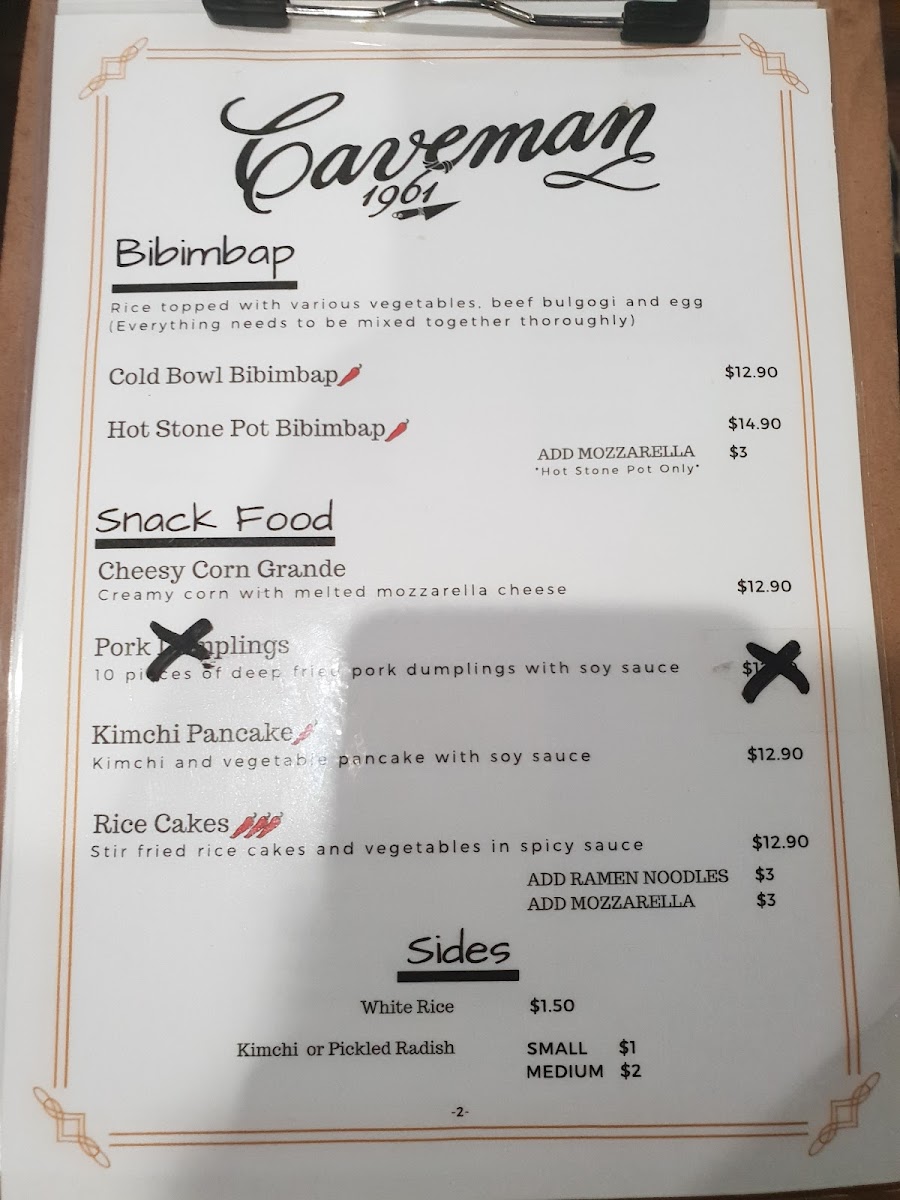 Caveman
1961
Bibimbap
Rice topped with various vegetables, beef bulgogi and egg
(Everything needs to be mixed together thoroughly)
Cold Bowl Bibimbap $12.90
Hot Stone Pot Bibimbap $14.90
ADD MOZZARELLA $3
*Hot Stone Pot Only*
Snack Food
Cheesy Corn Grande
Creamy corn with melted mozzarella cheese $12.90
Pork Dumplings
10 pieces of deep fried pork dumplings with soy sauce
Kimchi Pancake
Kimchi and vegetable pancake with soy sauce $12.90
Rice Cakes
Stir fried rice cakes and vegetables in spicy sauce $12.90
ADD RAMEN NOODLES $3
ADD MOZZARELLA $3
Sides
White Rice $1.50
Kimchi or Pickled Radish SMALL $1
MEDIUM $2
-2-